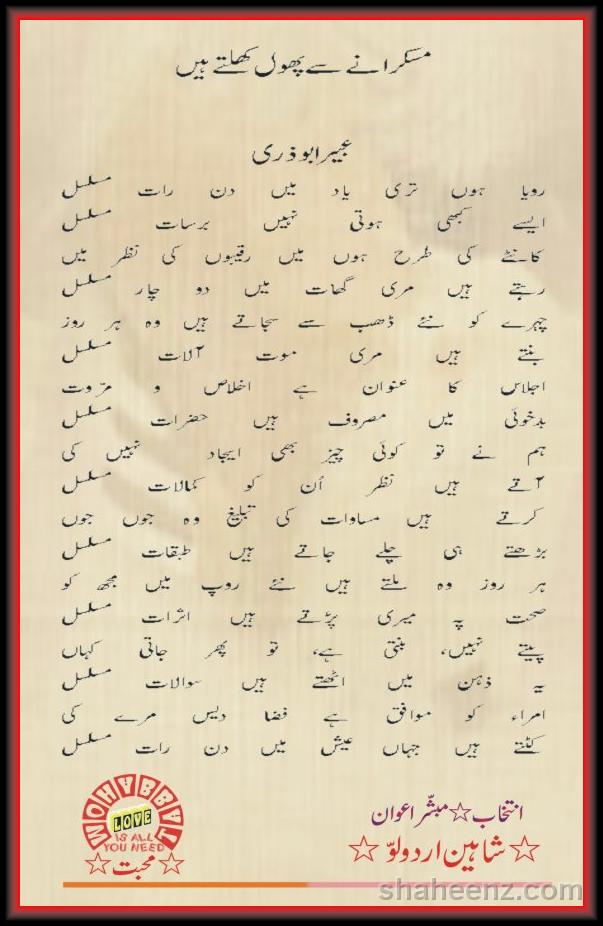 مسکرانے سے پھول کھلتے ہیں
عبیر ابوذری
رویا ہوں تری یاد میں دن رات مسلسل
ایسے کبھی ہوتی نہیں برسات مسلسل
کانٹے کی طرح ہوں میں رقیبوں کی نظر میں
رہتے ہیں مری گھات میں دو چار مسلسل
چہرے کو نئے ڈھب سے سجاتے ہیں وہ ہر روز
بنتے ہیں مری موت آلات مسلسل
اجلاس کا عنوان ہے اخلاص و مروّت
بدخوئی میں مصروف ہیں حضرات مسلسل
ہم نے تو کوئی چیز بھی ایجاد نہیں کی
آتے ہیں نظر اُن کو کمالات مسلسل
کرتے ہیں مساوات کی تبلیغ وہ جوں جوں
بڑھتے ہی چلے جاتے ہیں طبقات مسلسل
ہر روز وہ ملتے ہیں نئے روپ میں مجھ کو
صحت پہ میری پڑتے ہیں اثرات مسلسل
پیتے نہیں، بنتی ہے، تو پھر جاتی کہاں
یہ ذہن میں اٹھتے ہیں سوالات مسلسل
امراء کو موافق ہے فضا دیس مرے کی
کٹتے ہیں جہاں عیش میں دن رات مسلسل
انتخاب☆مبشّر اعوان
☆شاہین اردو لوّ☆
MOHABBAT
LOVE
IS ALL
YOU NEED
☆محبت☆
shaheenz.com